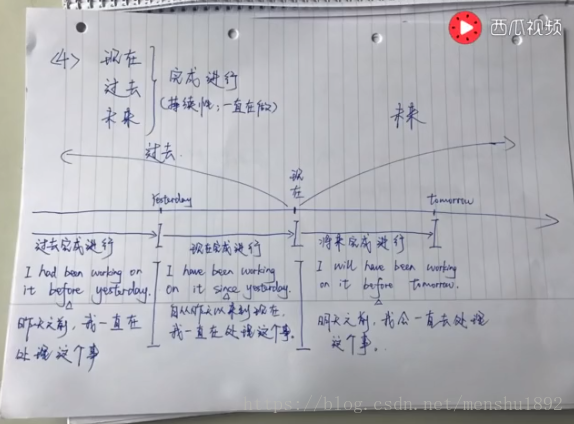 西瓜视频
<4> 现在
过去
未来
完成进行
(持续性,一直在做)
过去
现在
未来
Yesterday
tomorrow
过去完成进行
现在完成进行
将来完成进行
I had been working on
it before yesterday.
昨天之前,我一直在
处理这个事
I have been working
on it since yesterday.
自从昨天以来到现在,
我一直在处理这个事.
I will have been working
on it before tomorrow.
明天之前,我会一直去处理
这个事.
https://blog.csdn.net/menshu1892